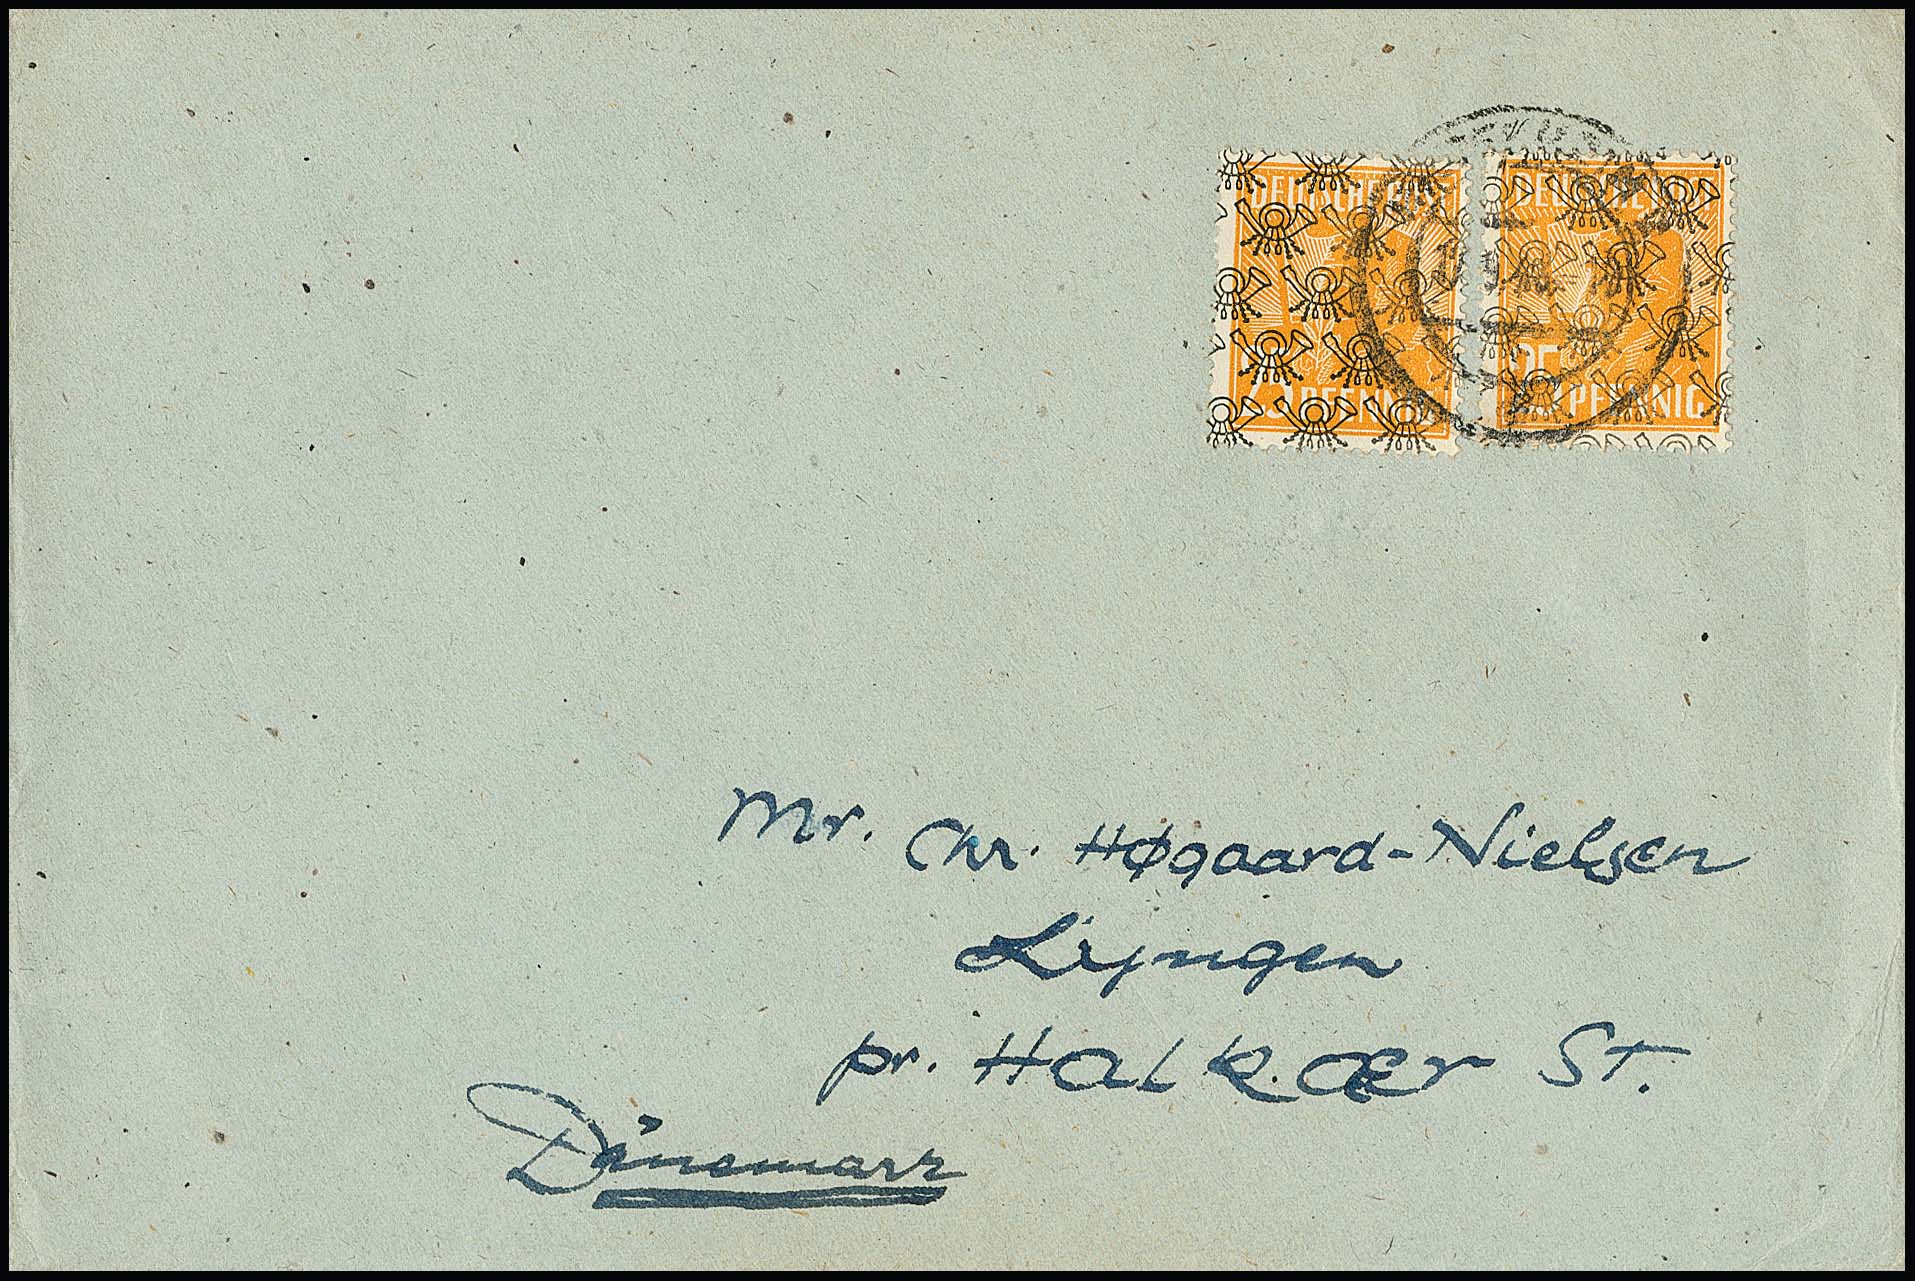 DEUTSCHE POST DEUTSCHE
25 PFENNIG 25 PFENNIG
Mr. Chr. Høgaard-Nielsen
Lyngen
pr. Halkær St.
Dänemark